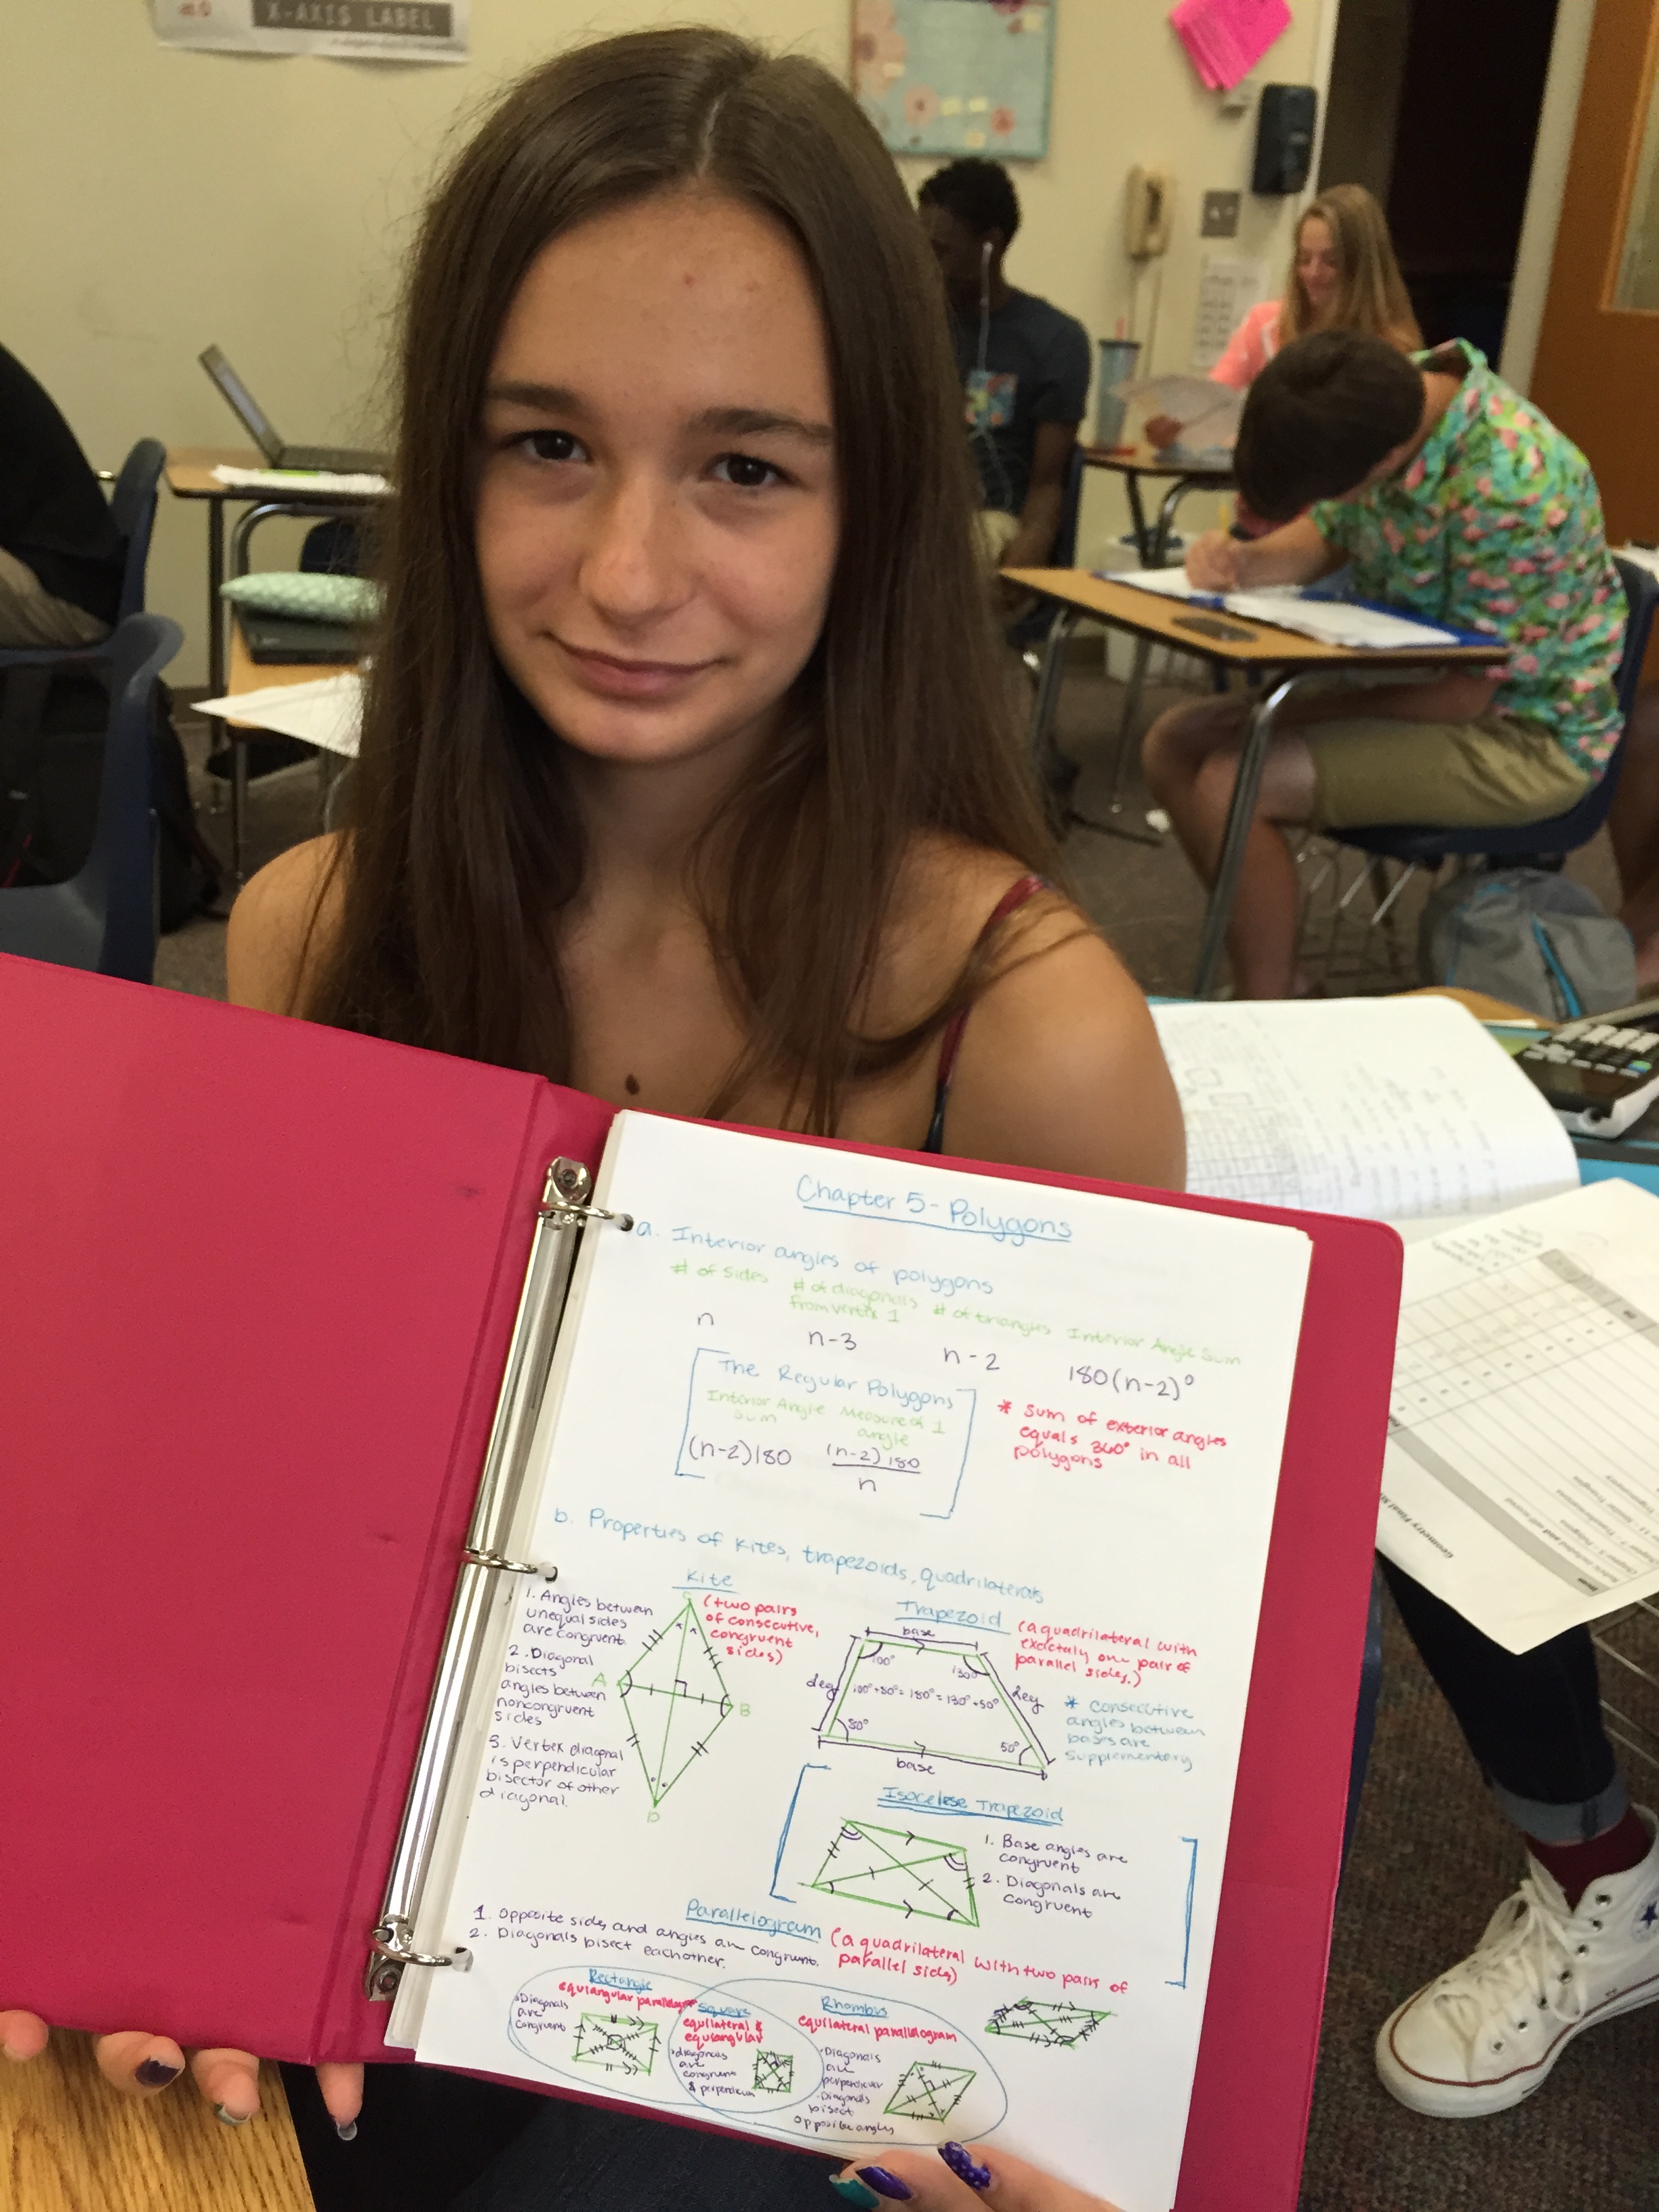 X-AXIS LABEL
Chapter 5 - Polygons
a. Interior angles of polygons
# of sides # of diagonals from vertex 1 # of triangles Interior Angle Sum
n n-3 n-2 180(n-2)°
The Regular Polygons
Interior Angle Sum Measure of 1 angle
(n-2)180 (n-2)180
n
* sum of exterior angles
equals 360° in all
polygons
b. Properties of kites, trapezoids, quadrilaterals
Kite
(two pairs
of consecutive,
congruent
sides)
1. Angles between
unequal sides
are congruent.
2. Diagonal
bisects
angles between
noncongruent
sides
3. Vertex diagonal
is perpendicular
bisector of other
diagonal.
C
A
B
D
Trapezoid
(a quadrilateral with
exactaly one pair of
parallel sides.)
base
100° 130°
leg
100°+80°=180°=130°+50°
leg
80° 50°
base
* consecutive
angles between
bases are
supplementary
Isocelese Trapezoid
1. Base angles are
congruent
2. Diagonals are
congruent
Parallelogram (a quadrilateral with two pairs of
parallel sides)
1. Opposite sides and angles are congruent.
2. Diagonals bisect eachother.
Rectangle
equiangular parallelogram
Diagonals
are
congruent
Square
equilateral &
equiangular
diagonals
are
congruent
& perpendicular
Rhombus
equilateral parallelogram
Diagonals
are
perpendicular
Diagonals
bisect
opposite angles